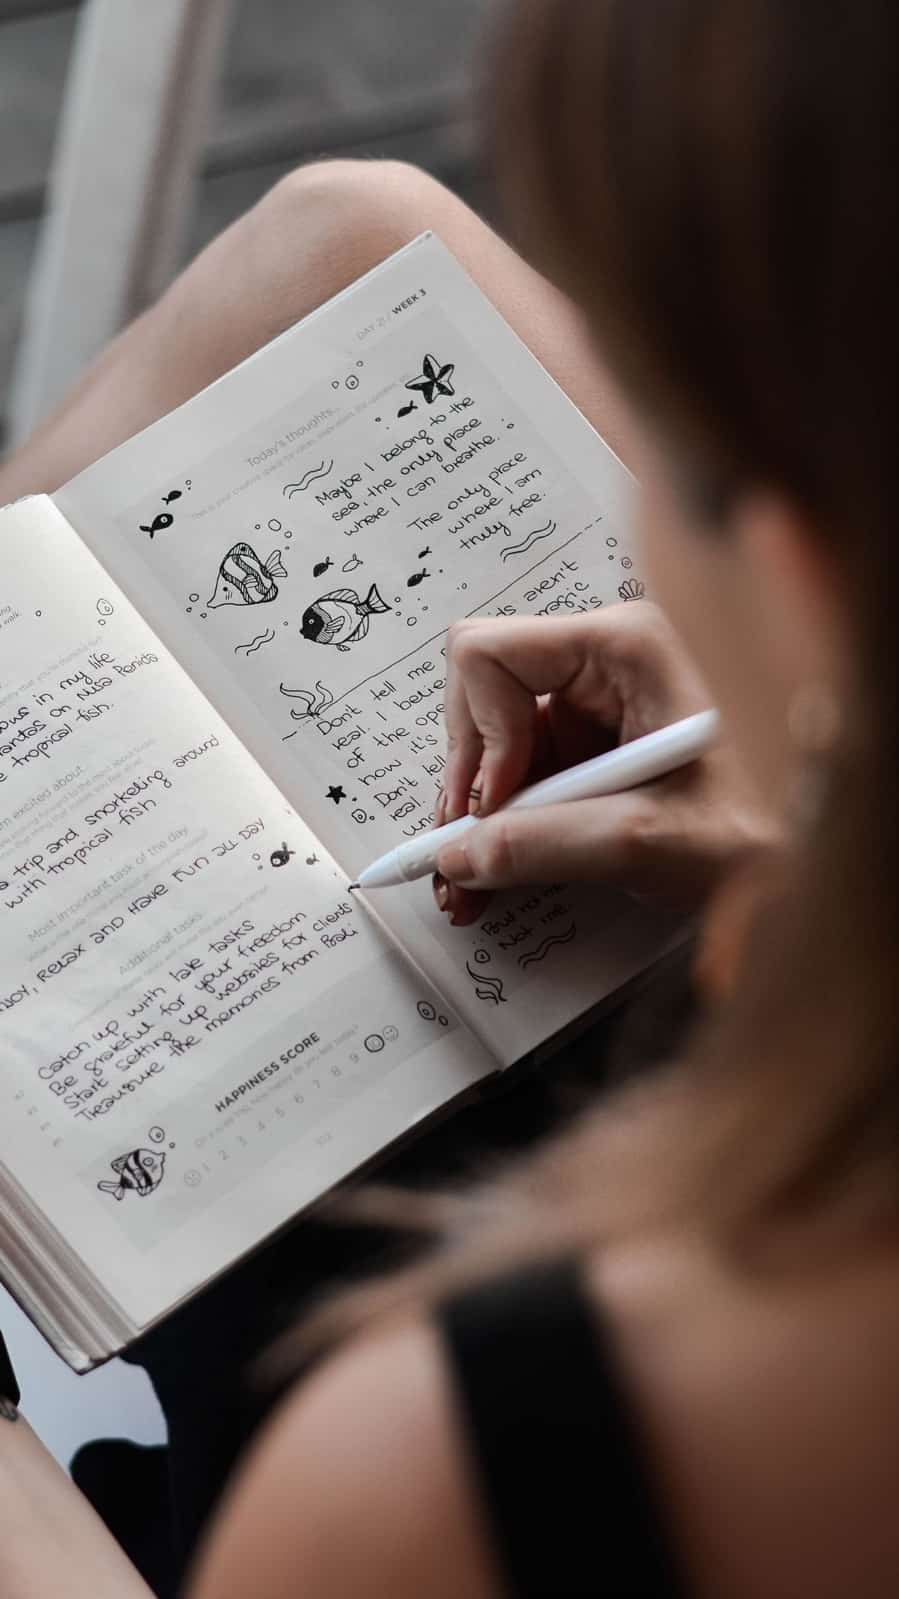 walk.
ons in my life
mantas on Nusa Penida
tropical fish.
m excited about
trip and snorkeling around
with tropical fish
Most important task of the day
njoy, Relax and Have Fun all day
Additional tasks
Catch up with late tasks
Be grateful for your freedom
Start setting up websites for clients
Treausure the memories from Bali
HAPPINESS SCORE
1 2 3 4 5 6 7 8 9
102
DAY 21 / WEEK 3
Today's thoughts...
Maybe I belong to the
sea, the only place
where I can breathe.
The only place
where I am
truly free.
Don't tell me ds aren't
real. I believe magic
of the ope t's
how it's
Don't tell
real.
But not me.
Not me.